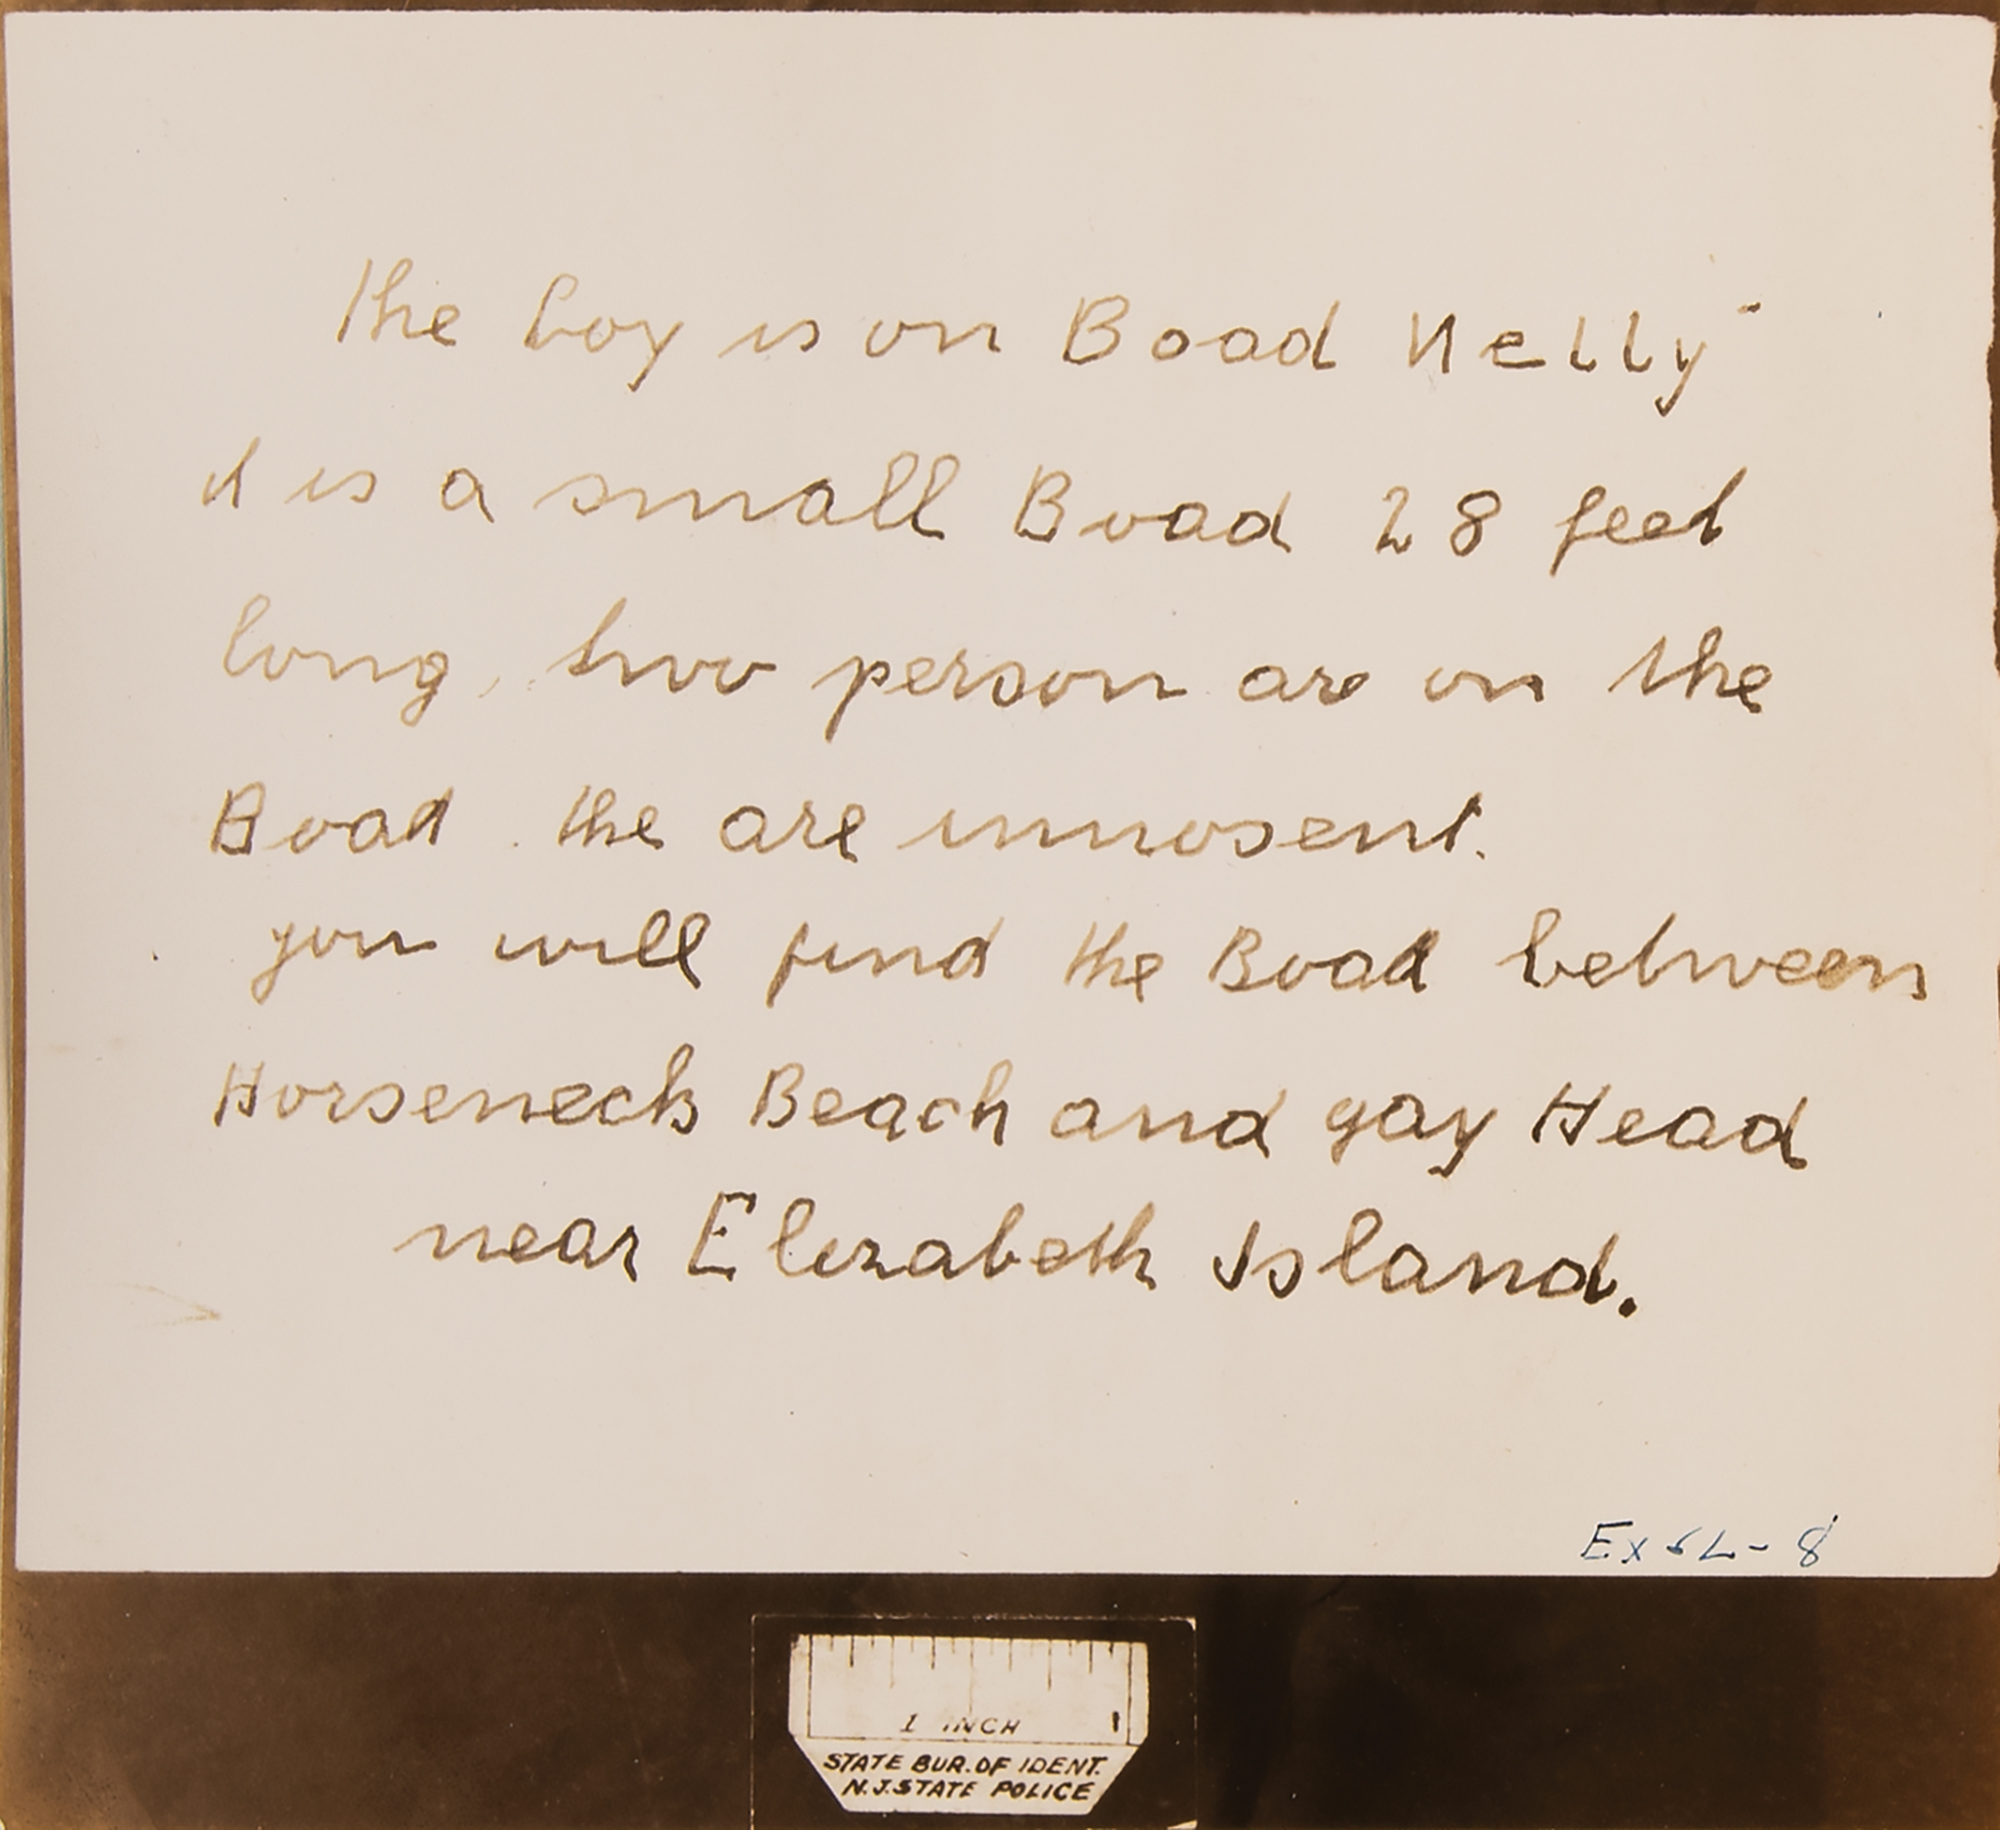 the boy is on Boad Nelly"
it is a small Boad 28 feet
long, two person are on the
Boad. the are innosent.
you will find the Boad between
Horseneck Beach and gay Head
near Elizabeth Island.
Ex
- 8
1 INCH 1
STATE BUR. OF IDENT.
N.J. STATE POLICE